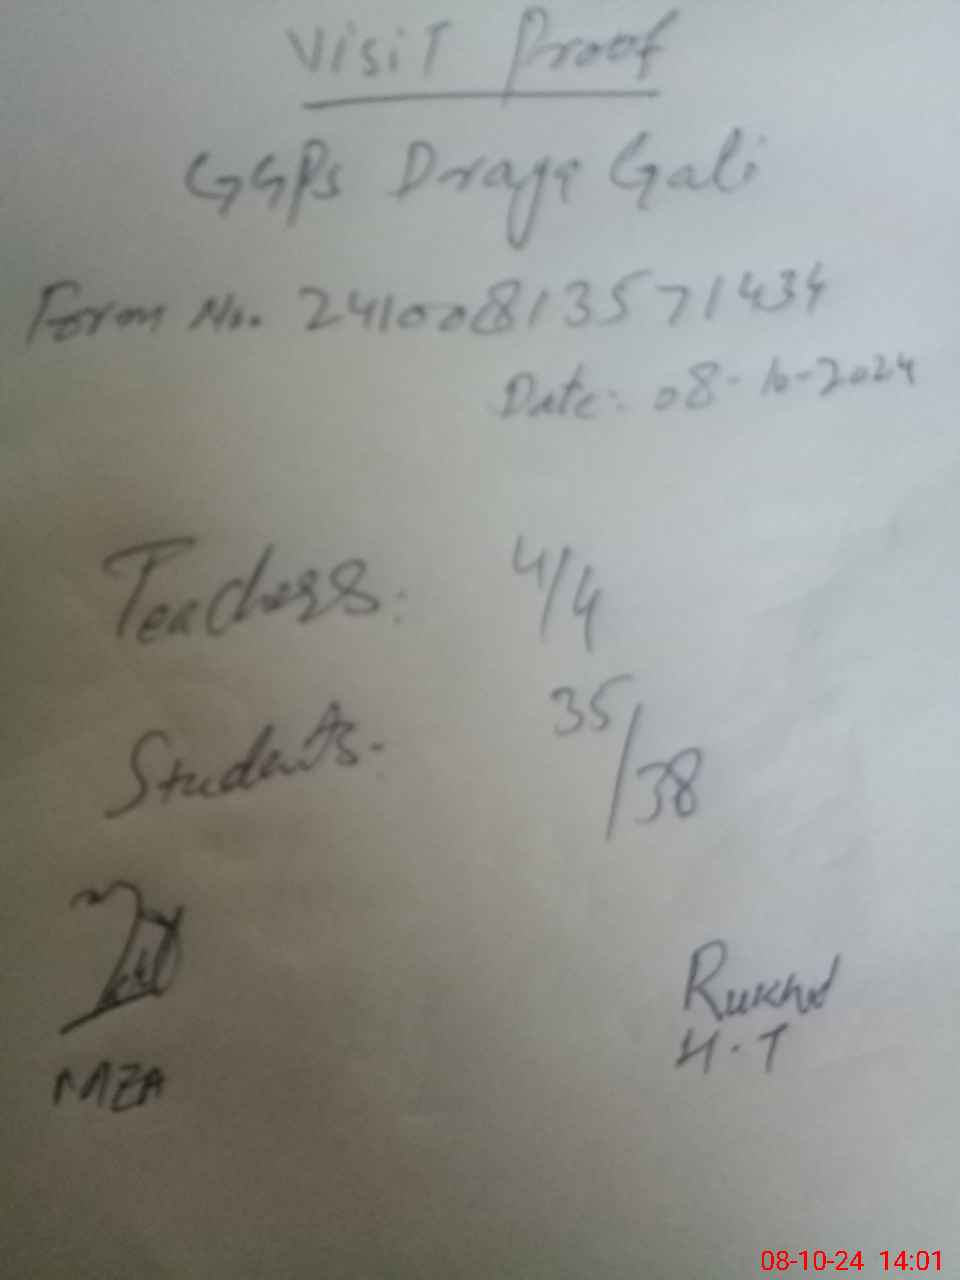 Visit Proof
GGPS Drage Gali
Form No. 24100813571434
Date: 08-10-2024
Teachers: 4/4
Students: 35/38
MEA
H.T
08-10-24 14:01